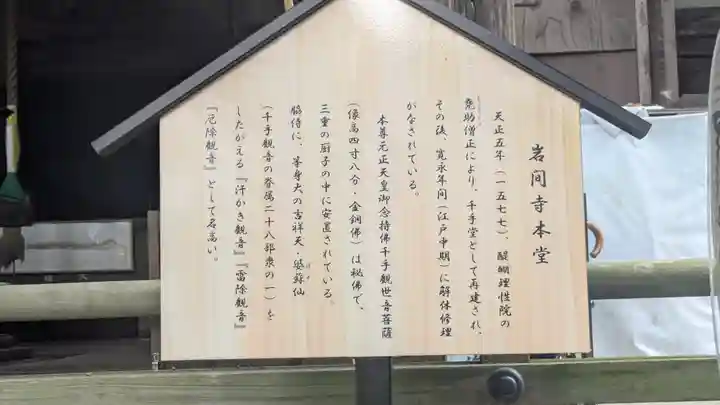 岩间寺本堂
天正五年(一五七七)、醍醐理性院の
堯助僧正により、千手堂として再建され、
その後、寛永年间(江戸中期)に解体修理
がなされている。
本尊元正天皇御念持佛千手觀世音菩薩
(像高四寸八分・金銅佛)は秘佛で、
三重の厨子の中に安置されている。
脇侍に、等身大の吉祥天・婆蘇仙
(千手觀音の眷属二十八部衆の一)を
したがえる『汗かき觀音』『雷除觀音』
『厄除觀音』として名高い。